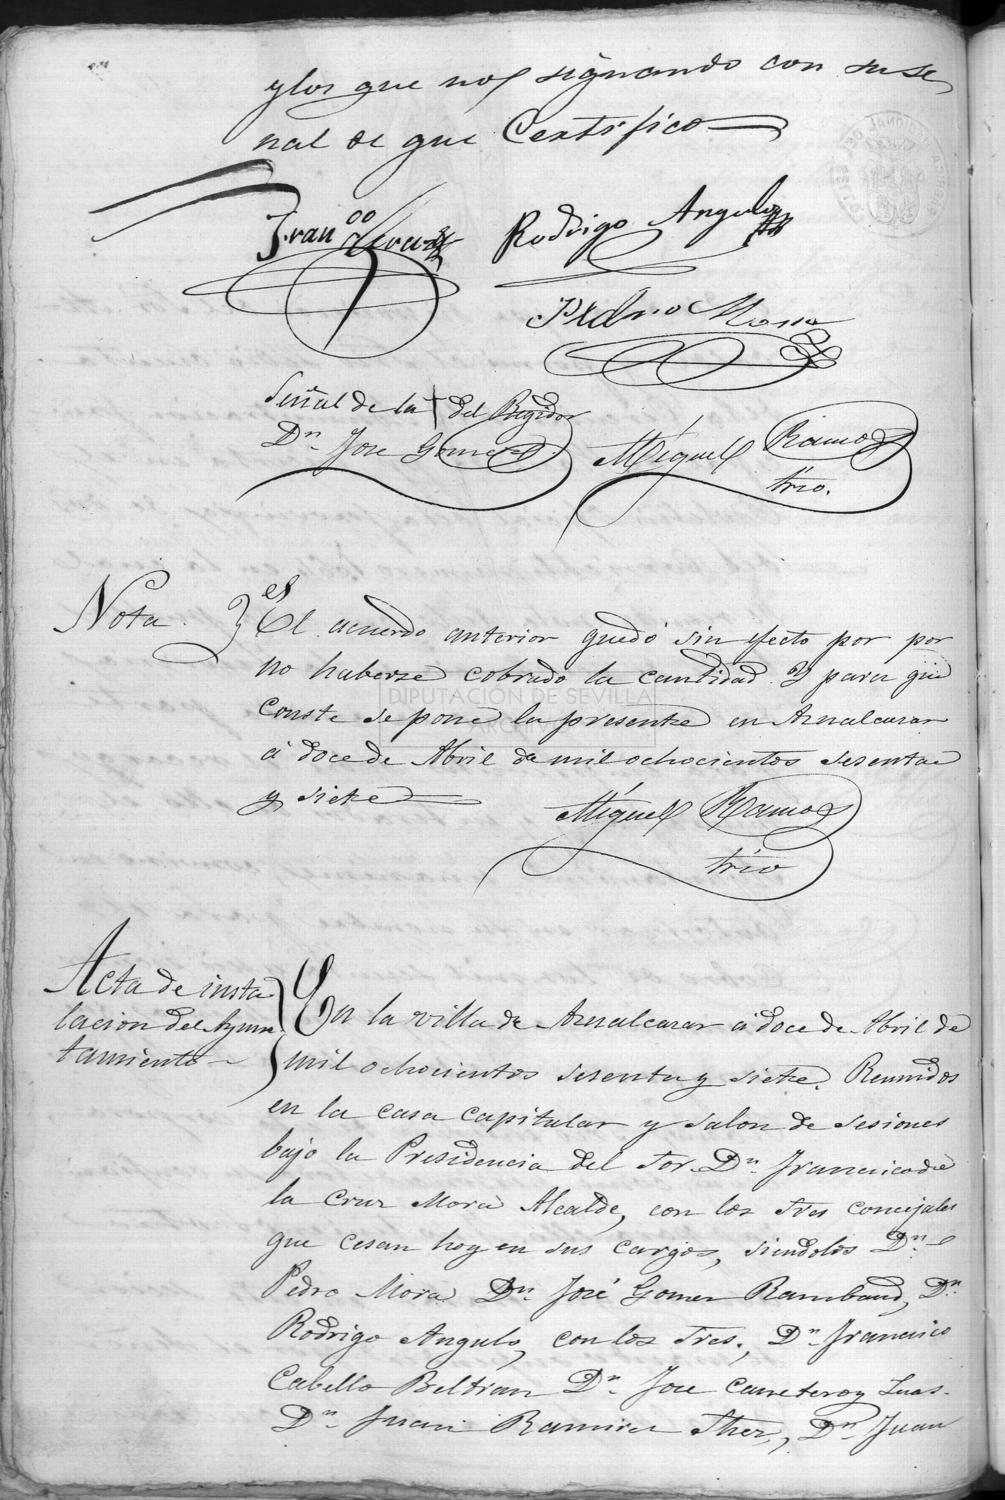 y los que no, signando con su se
ñal de que Certifico
Fran.co Cruz
Rodrigo Angulo
Pedro Mora
Señal de la † del Regidor
Dn. Jose Gomez
Miguel Ramos
trio.
Nota.
El acuerdo anterior quedó sin efecto por por
no haberse cobrado la cantidad. Y para que
DIPUTACIÓN DE SEVILLA
conste se pone la presente en Aznalcazar
á doce de Abril de mil ochocientos sesenta
y siete
Miguel Ramos
trio
Acta de insta
lacion del Ayun
tamiento
En la villa de Aznalcazar á doce de Abril de
mil ochocientos sesenta y siete. Reunidos
en la casa capitular y salon de sesiones
bajo la Presidencia del Sor. Dn. Francisco de
la Cruz Mora Alcalde, con los Sres concejales
que cesan hoy en sus cargos, siendolos Dn.
Pedro Mora Dn. José Gomez Rambaud, Dn.
Rodrigo Angulo, con los Sres., Dn. Francisco
Cabello Beltran Dn. Jose Carretero y
Dn. Juan Ramirez Dn. Juan